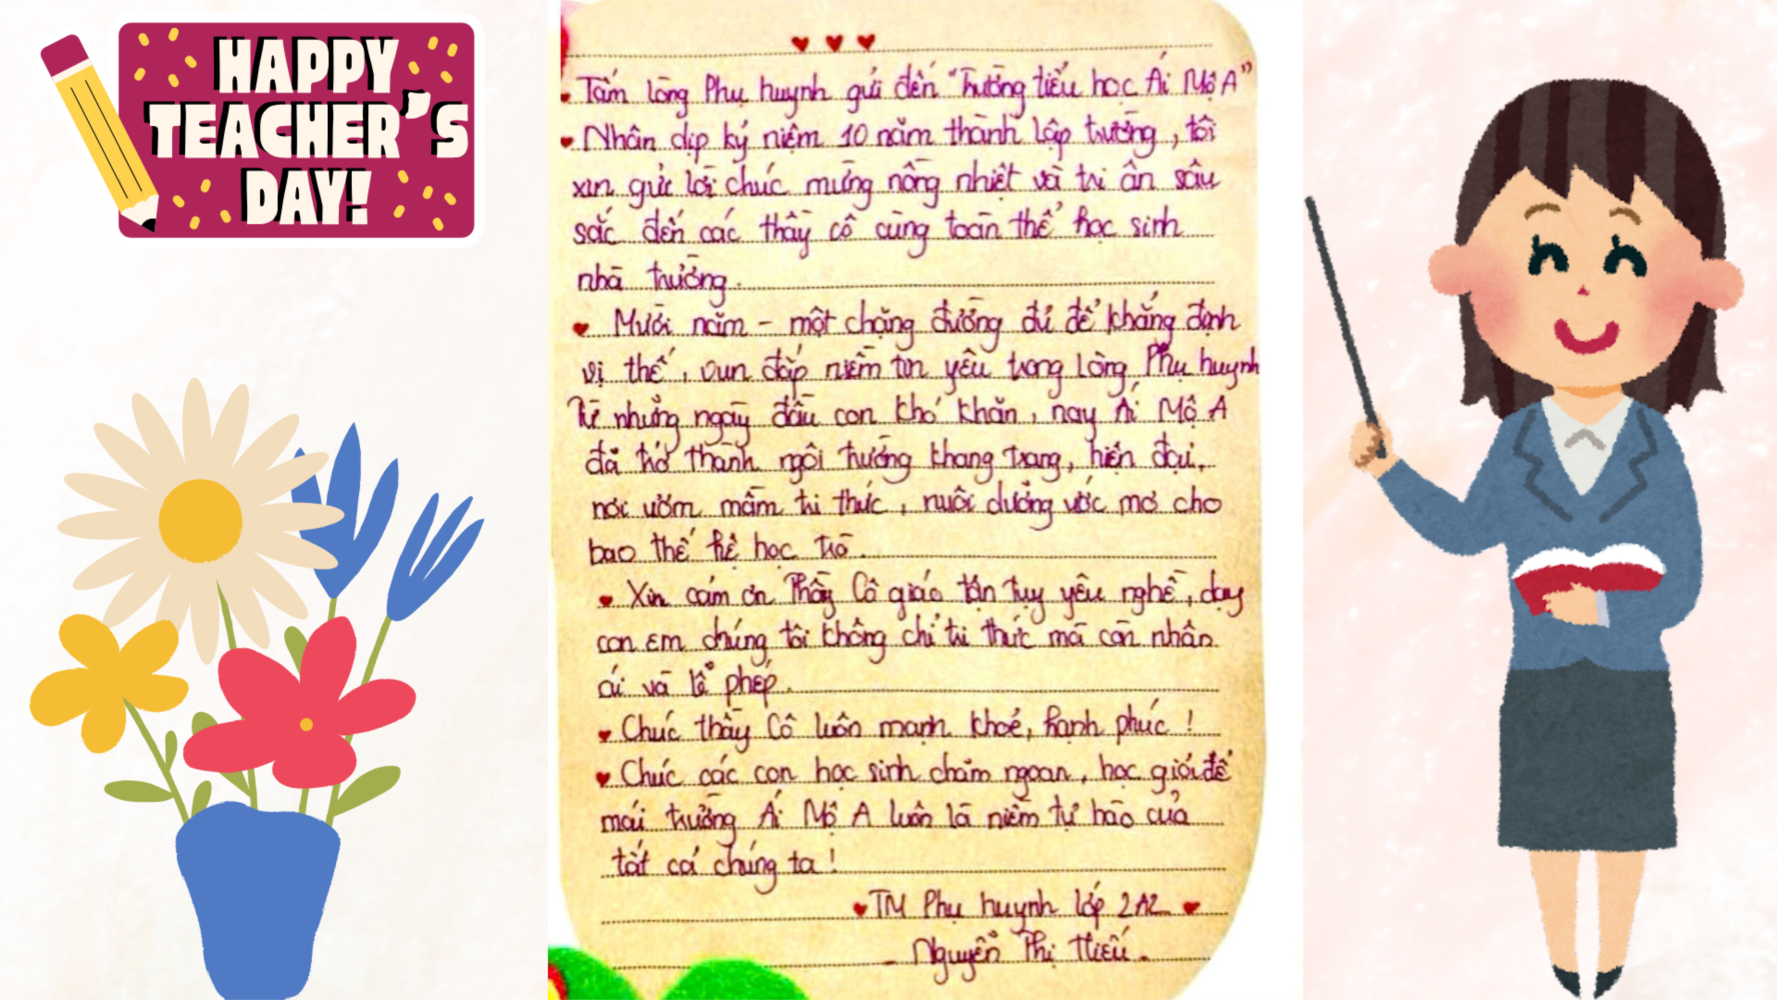 HAPPY
TEACHER'S
DAY!
Tấm lòng Phụ huynh gửi đến "Trường tiểu học Ái Mộ A"
Nhân dịp kỷ niệm 10 năm thành lập trường, tôi
xin gửi lời chúc mừng nồng nhiệt và tri ân sâu
sắc đến các thầy cô cùng toàn thể học sinh
nhà trường.
Mười năm - một chặng đường đủ để khẳng định
vị thế, vun đắp niềm tin yêu trong lòng Phụ huynh
Từ những ngày đầu còn khó khăn, nay Ái Mộ A
đã trở thành ngôi trường khang trang, hiện đại,
nơi ươm mầm tri thức, nuôi dưỡng ước mơ cho
bao thế hệ học trò.
Xin cảm ơn Thầy Cô giáo tận tụy yêu nghề, dạy
con em chúng tôi không chỉ tri thức mà còn nhân
ái và lễ phép.
Chúc thầy Cô luôn mạnh khoẻ, hạnh phúc!
Chúc các con học sinh chăm ngoan, học giỏi để
mái trường Ái Mộ A luôn là niềm tự hào của
tất cả chúng ta!
TM Phụ huynh lớp 2A2
- Nguyễn Thị .